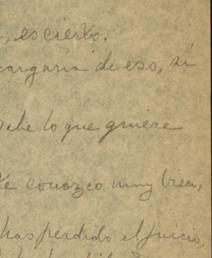 , es cierto.
cargaría de eso, si
debe lo que quiere
te conozco muy bien,
has perdido el juicio,